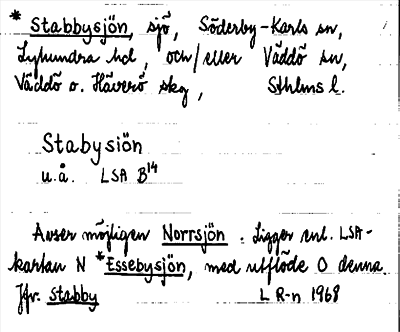 * Stabbysjön, sjö, Söderby-Karls sn,
Lyhundra hd, och/eller Väddö sn,
Väddö o. Häverö skg, Sthlms l.
Stabysiön
u.å. LSA B14
Avser möjligen Norrsjön. Ligger enl. LSA-
kartan N *Essebysjön, med utflöde O denna.
Jfr. Stabby
L R-n 1968